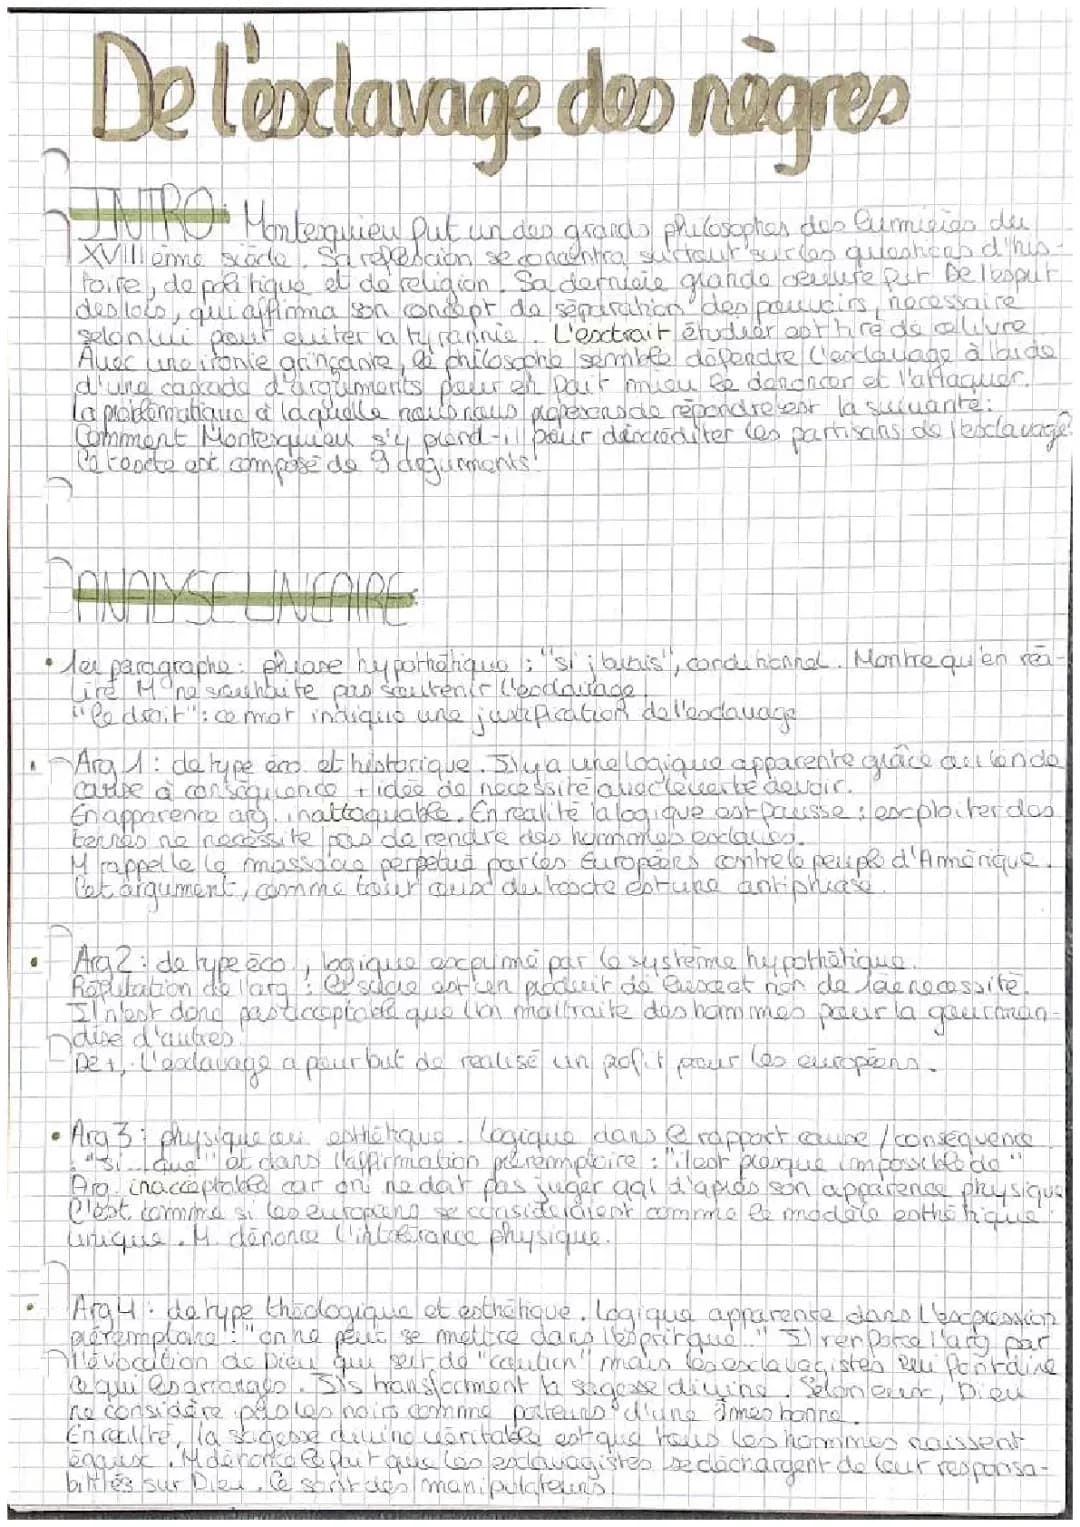 De l'esclavage des nègres
INTRO: Montesquieu fut un des grands philosophes des Lumières du
XVIIIème siècle. Sa réflexion se concentra surtout sur les questions d'his-
toire, de politique et de religion. Sa dernière grande oeuvre fut De l'esprit
des lois, qui affirma son concept de séparation des pouvoirs, nécessaire
selon lui pour éviter la tyrannie. L'extrait étudier est tiré de ce livre.
Avec une ironie grinçante, le philosophe semble défendre l'esclavage à l'aide
d'une cascade d'arguments pour en fait mieu le dénoncer et l'attaquer.
La problématique à laquelle nous nous proposons de répondre est la suivante:
Comment Montesquieu s'y prend-il pour décréditer les partisans de l'esclavage
Ce texte est composé de 9 arguments!
ANALYSE LINEAIRE
• 1er paragraphe: phrase hypothétique: "si j'avais", conditionnel. Montre qu'en réa-
lité M ne souhaite pas soutenir l'esclavage.
"le droit": ce mot indique une justification de l'esclavage
• Arg 1: de type éco. et historique. Il y a une logique apparente grâce au lien de
cause à conséquence + idée de nécessité avec le verbe devoir.
En apparence arg. inattaquable. En réalité la logique est fausse: exploiter des
terres ne nécessite pas de rendre des hommes esclaves.
M rappelle le massacre perpétué par les Européens contre le peuple d'Amérique.
Cet argument, comme tout au du texte est une antiphrase.
• Arg 2: de type éco, logique exprimé par le système hypothétique.
Réfutation de l'arg: le sucre est un produit de luxe et non de nécessité.
Il n'est donc pas acceptable que l'on maltraite des hommes pour la gourman-
dise d'autres.
De +, l'esclavage a pour but de réalisé un profit pour les européens.
• Arg 3: physique ou esthétique. Logique dans le rapport cause / conséquence
"si... que" et dans l'affirmation péremptoire: "il est presque impossible de"
Arg. inacceptable car on ne doit pas juger qql d'après son apparence physique
C'est comme si les européens se considéraient comme le modèle esthétique
unique. M. dénonce l'intolérance physique.
• Arg 4: de type théologique et esthétique. Logique apparente dans l'expression
péremptoire: "on ne peut se mettre dans l'esprit que..." Il renforce l'arg par
l'évocation de Dieu qui sert de "caution" mais les esclavagistes lui font dire
ce qui les arrange. Ils transforment la sagesse divine. Selon eux, Dieu
ne considère pas les noirs comme porteurs d'une âmes bonne.
En réalité, la sagesse divine véritable est que tous les hommes naissent
égaux. M dénonce le fait que les esclavagistes se déchargent de leur responsa-
bilités sur Dieu. Ce sont des manipulateurs.